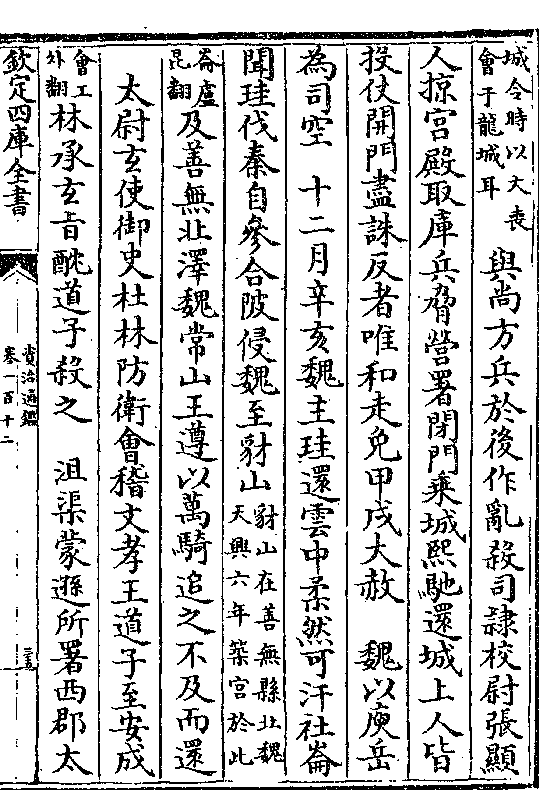 城令時以大喪
會于龍城耳
與尚方兵於後作亂殺司隷校尉張顯
人掠宫殿取庫兵脅營署閉門乘城熙馳還城上人皆
投仗開門盡誅反者唯和走免甲戌大赦　魏以庾岳
為司空　十二月辛亥魏主珪還雲中柔然可汗社崘
聞珪伐秦自參合陂侵魏至豺山
豺山在善無縣北魏
天興六年築宫於此
崘盧
昆翻
及善無北澤魏常山王遵以萬騎追之不及而還
太尉玄使御史杜林防衛會稽文孝王道子至安成
會工
外翻
林承玄旨酖道子殺之　沮渠蒙遜所署西郡太
欽定四庫全書
資治通鑑
卷一百十二